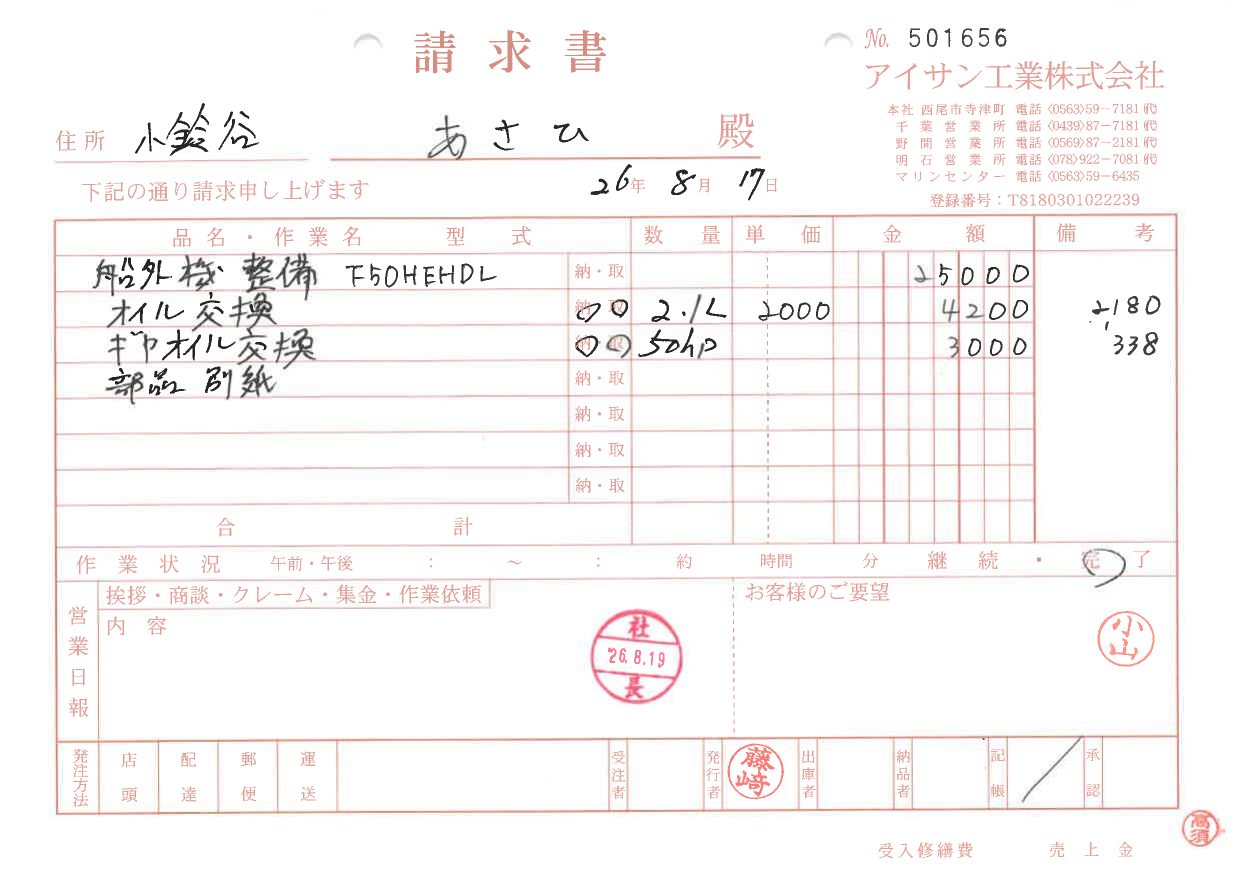 請求書
No. 501656
アイサン工業株式会社
本社 西尾市寺津町 電話〈0563〉59-7181㈹
千葉営業所 電話〈0439〉87-7181㈹
野間営業所 電話〈0569〉87-2181㈹
明石営業所 電話〈078〉922-7081㈹
マリンセンター 電話〈0563〉59-6435
登録番号:T8180301022239
住所 小鈴谷 あさひ 殿
下記の通り請求申し上げます 26年 8月 17日
品名・作業名 型式 数量 単価 金額 備考
船外機 整備 F50HEHDL 納・取 25000
オイル交換 2.1L 2000 4200 2180
ギヤオイル交換 50hp 3000 338
部品 別紙 納・取
納・取
納・取
納・取
合計
作業状況 午前・午後 : ～ : 約 時間 分 継続・完了
営業日報
挨拶・商談・クレーム・集金・作業依頼
内容
お客様のご要望
社
'26.8.19
長
小山
発注方法 店頭 配達 郵便 運送 受注者 発行者 藤崎 出庫者 納品者 記帳 承認
高須
受入修繕費 売上金